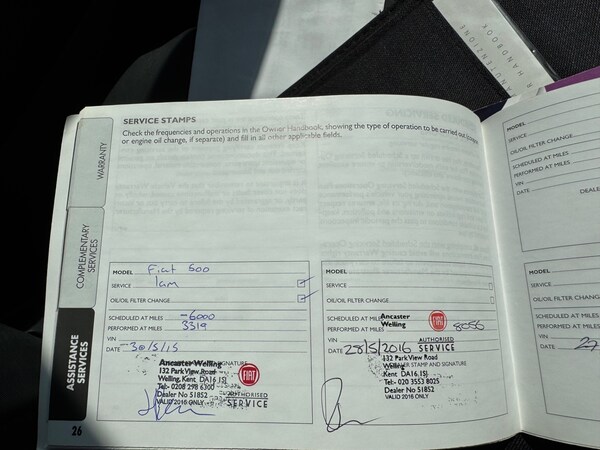 MANUTENZIONE
HANDBOOK
SERVICE STAMPS
Check the frequencies and operations in the Owner Handbook, showing the type of operation to be carried out (coupon
or engine oil change, if separate) and fill in all other applicable fields.
WARRANTY
COMPLEMENTARY
SERVICES
ASSISTANCE
SERVICES
MODEL Fiat 500
SERVICE 1am
OIL/OIL FILTER CHANGE
SCHEDULED AT MILES -6000
PERFORMED AT MILES 3319
VIN
DATE -30/5/15
SIGNATURE
Ancaster Welling
132 Park View Road
Welling, Kent DA16 1SJ
Tel:- 0208 298 6300
Dealer No 51852
VALID 2016 ONLY
FIAT
AUTHORISED
SERVICE
MODEL
SERVICE
OIL/OIL FILTER CHANGE
SCHEDULED AT MILES
PERFORMED AT MILES 8056
VIN
DATE 28/5/2016
Ancaster
Welling
FIAT
AUTHORISED
SERVICE
DEALER STAMP AND SIGNATURE
132 Park View Road
Welling
Kent DA16 1SJ
Tel:- 020 3553 8025
Dealer No 51852
VALID 2016 ONLY
26
MODEL
SERVICE
OIL/OIL FILTER CHANGE
SCHEDULED AT MILES
PERFORMED AT MILES
VIN
DATE
DEALE
MODEL
SERVICE
OIL/OIL FILTER CHANGE
SCHEDULED AT MILES
PERFORMED AT MILES
VIN
DATE 27